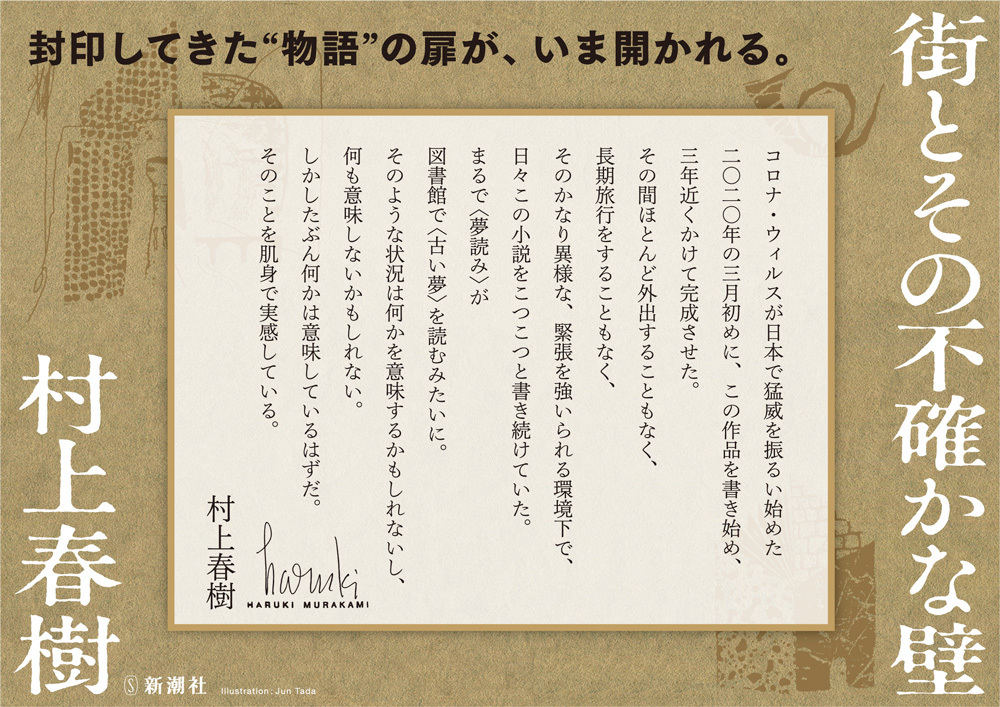 封印してきた“物語”の扉が、いま開かれる。
街とその不確かな壁
コロナ・ウィルスが日本で猛威を振るい始めた
二〇二〇年の三月初めに、この作品を書き始め、
三年近くかけて完成させた。
その間ほとんど外出することもなく、
長期旅行をすることもなく、
そのかなり異様な、緊張を強いられる環境下で、
日々この小説をこつこつと書き続けていた。
まるで〈夢読み〉が
図書館で〈古い夢〉を読むみたいに。
そのような状況は何かを意味するかもしれないし、
何も意味しないかもしれない。
しかしたぶん何かは意味しているはずだ。
そのことを肌身で実感している。
haruki
HARUKI MURAKAMI
村上春樹
村上春樹
S 新潮社
Illustration: Jun Tada